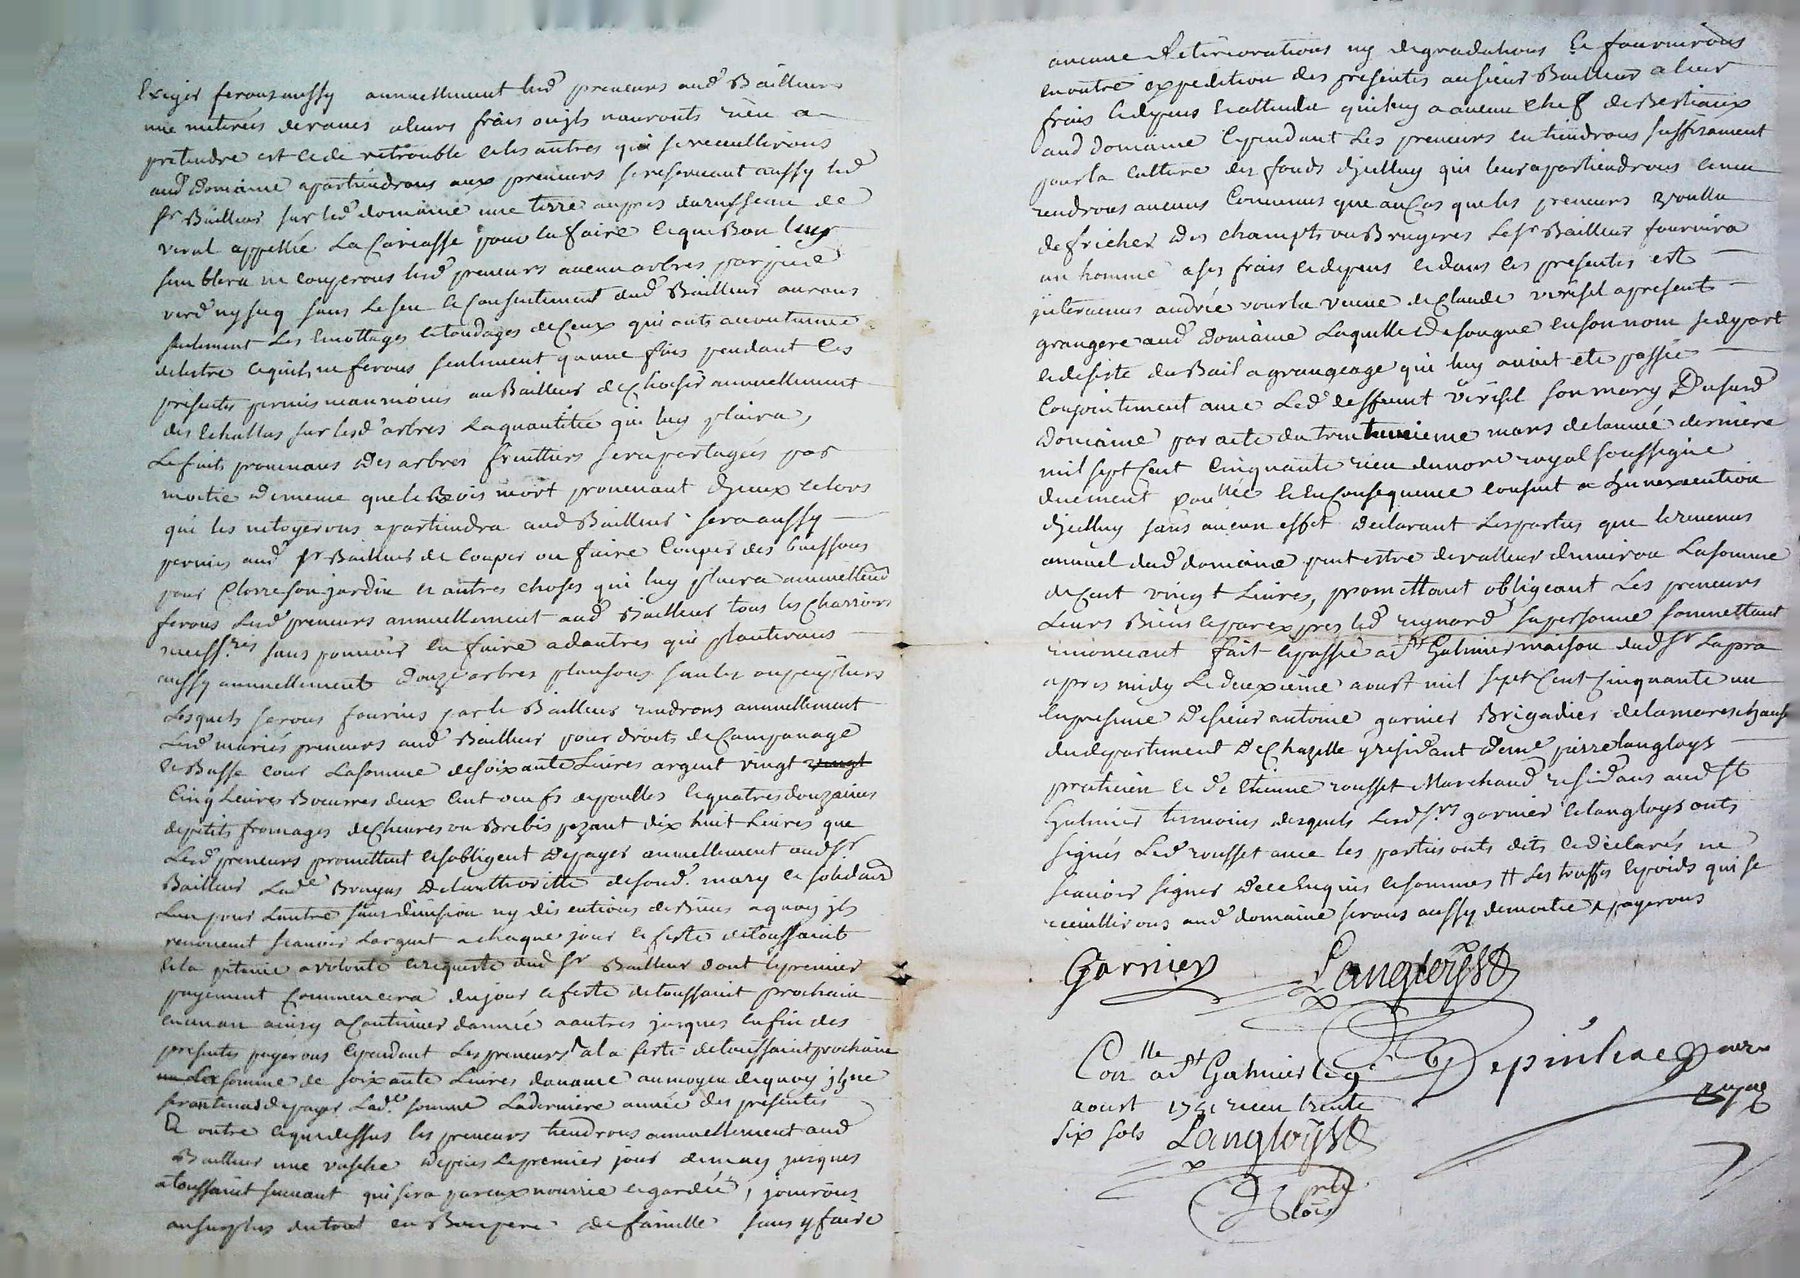 Exiger feront aussy annuellement lesd preneurs aud Bailleur
une meteries de raves a leurs frais ou ils nauronts rien a
pretendre et celle de retrouble et les autres qui se recueillirons
aud Domaine apartiendrons aux preneurs se reservant aussy led
Sr Bailleur sur led domaine une terre aupres du ruisseau de
verul appellée La Cariasse pour la faire ce que Bon luy
semblera ne couperons lesd preneurs aucun arbres par pied
verd ny secq sans le seu et Consentement dud Bailleur aurons
seulement Les emottages et tondages de Ceux qui onts accoutumé
de lestre et quils ne ferons seulement quune fois pendant les
presentes permis neanmoins au Bailleur de Choisir annuellement
des Echallas sur lesd arbres La quantitée qui luy plaira,
Le fruits provenans des arbres fruittiers sera partagés par
moitie de meme que le Bois mort provenant diceux et lors
qui les netoyerons apartiendra aud Bailleur sera aussy
permis aud Sr Bailleur de couper ou faire couper des buissons
pour Clorre son jardin et autres choses qui luy plaira annuellemt
ferons Lesd preneurs annuellement aud Bailleur tous les Charrois
necess.res sans pouvoir en faire a dautres qui planterons
aussy annuellement Douze arbres plansons saules ou peupliers
Lesquels serons fournis par le Bailleur rendrons annuellement
Lesd mariés preneurs aud Bailleur pour droits de Campanage
de Basse cour La somme de soixante Livres argent vingt vingt
Cinq Livres Beurres deux Cent oeufs de poulles et quatres douzaines
de petits fromages de Chevres ou Brebis pezant dix huit Livres que
Lesd preneurs promettent et sobligent de payer annuellement aud Sr
Bailleur Lade Bruyas de lauthoritte de sond. mary et solidaire
Lun pour Lautre sans division ny discutions de Biens a quoy ils
renoncent scavoir Largent a chaque jour et feste de toussaint
et la pitance a volonté et requeste dud Sr Bailleur dont le premier
payement Commencera du jour et feste de toussaint prochain
en un an ainsy a Continuer dannée a autres jusques en fin des
presentes payerons cependant Les preneurs a la feste de toussaint prochaine
somme de soixante Livres davance au moyen de quoy ils ne
seront tenus de payer Lade somme La derniere année des presentes
Et outre ce que dessus les preneurs tiendrons annuellement aud
Bailleur une vasche depuis le premier jour de may jusques
a toussaint suivant qui sera par eux nourrie et gardée, jouirons
au surplus du tout en Bon pere de famille sans y faire
aucune Deteriorations ny degradations Et fournirons
en outre expedition des presentes au sieur Bailleur a leur
frais et depens et attendu quil ny a aucun chef de Bestiaux
aud domaine Cependant Les preneurs en tiendrons suffisament
pour la culture des fonds dicelluy qui leur apartiendrons et nen
rendrons aucuns Comme
defricher des champts ou Bruyeres Le Sr Bailleur fournira
un homme a ses frais et depens et dans les presentes est
intervenue andrée vourla veuve de Claude verisel a present
grangere aud Domaine Laquelle de son gre en son nom se depart
et desiste du Bail a grangeage qui luy avoit ete passée
Conjointement avec Led deffunt verisel son mary Dususd
Domaine par acte du trente unieme mars de lannée derniere
mil sept Cent Cinquante recu du nore royal soussigne
duement con.llée Et En Consequence Consent a Linexecution
dicelluy sans aucun effet declarant Les parties que le revenus
annuel dud domaine peut estre de valleur denviron La somme
de Cent vingt Livres, promettant obligeant Les preneurs
Leurs Biens et par exprès led reynard sa personne sommettant
renonceant fait et passé a St Galmier maison dud Sr Lapra
apres midy Le deuxieme aoust mil Sept Cent Cinquante un
en presence De sieur antoine garnier Brigadier de la mareschaussée
du departement de Chazelle y residant de me pierre langloys
praticien et de Etienne rousset Marchand residans aud St
Galmier temoins desquels Lesd Srs garnier et langloys onts
signés Led rousset avec les parties onts dits et déclarés ne
scavoir signer de ce Enquis et sommes # Les truffes et poids qui se
recueillirons aud domaine serons aussy de moitie payerons
Garnier Langloys
Con.lle a St Galmier le 9e Depinhac nore
aoust 1751 recu trente royal
six sols Langloys